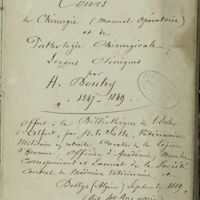 Cours
de Chirurgie (Manuel Opératoire)
et de
Pathologie Chirurgicale
Leçons Cliniques
par
H. Bouley
1847-1849
Offert à la Bibliothèque de l'École
d'Alfort, par Vétérinaire
Médecin en retraite, Chevalier de la Légion
d'Honneur, Officier d'Académie, Membre
Correspondant et Lauréat de la Société
Centrale de Médecine Vétérinaire
(Algérie) Septembre